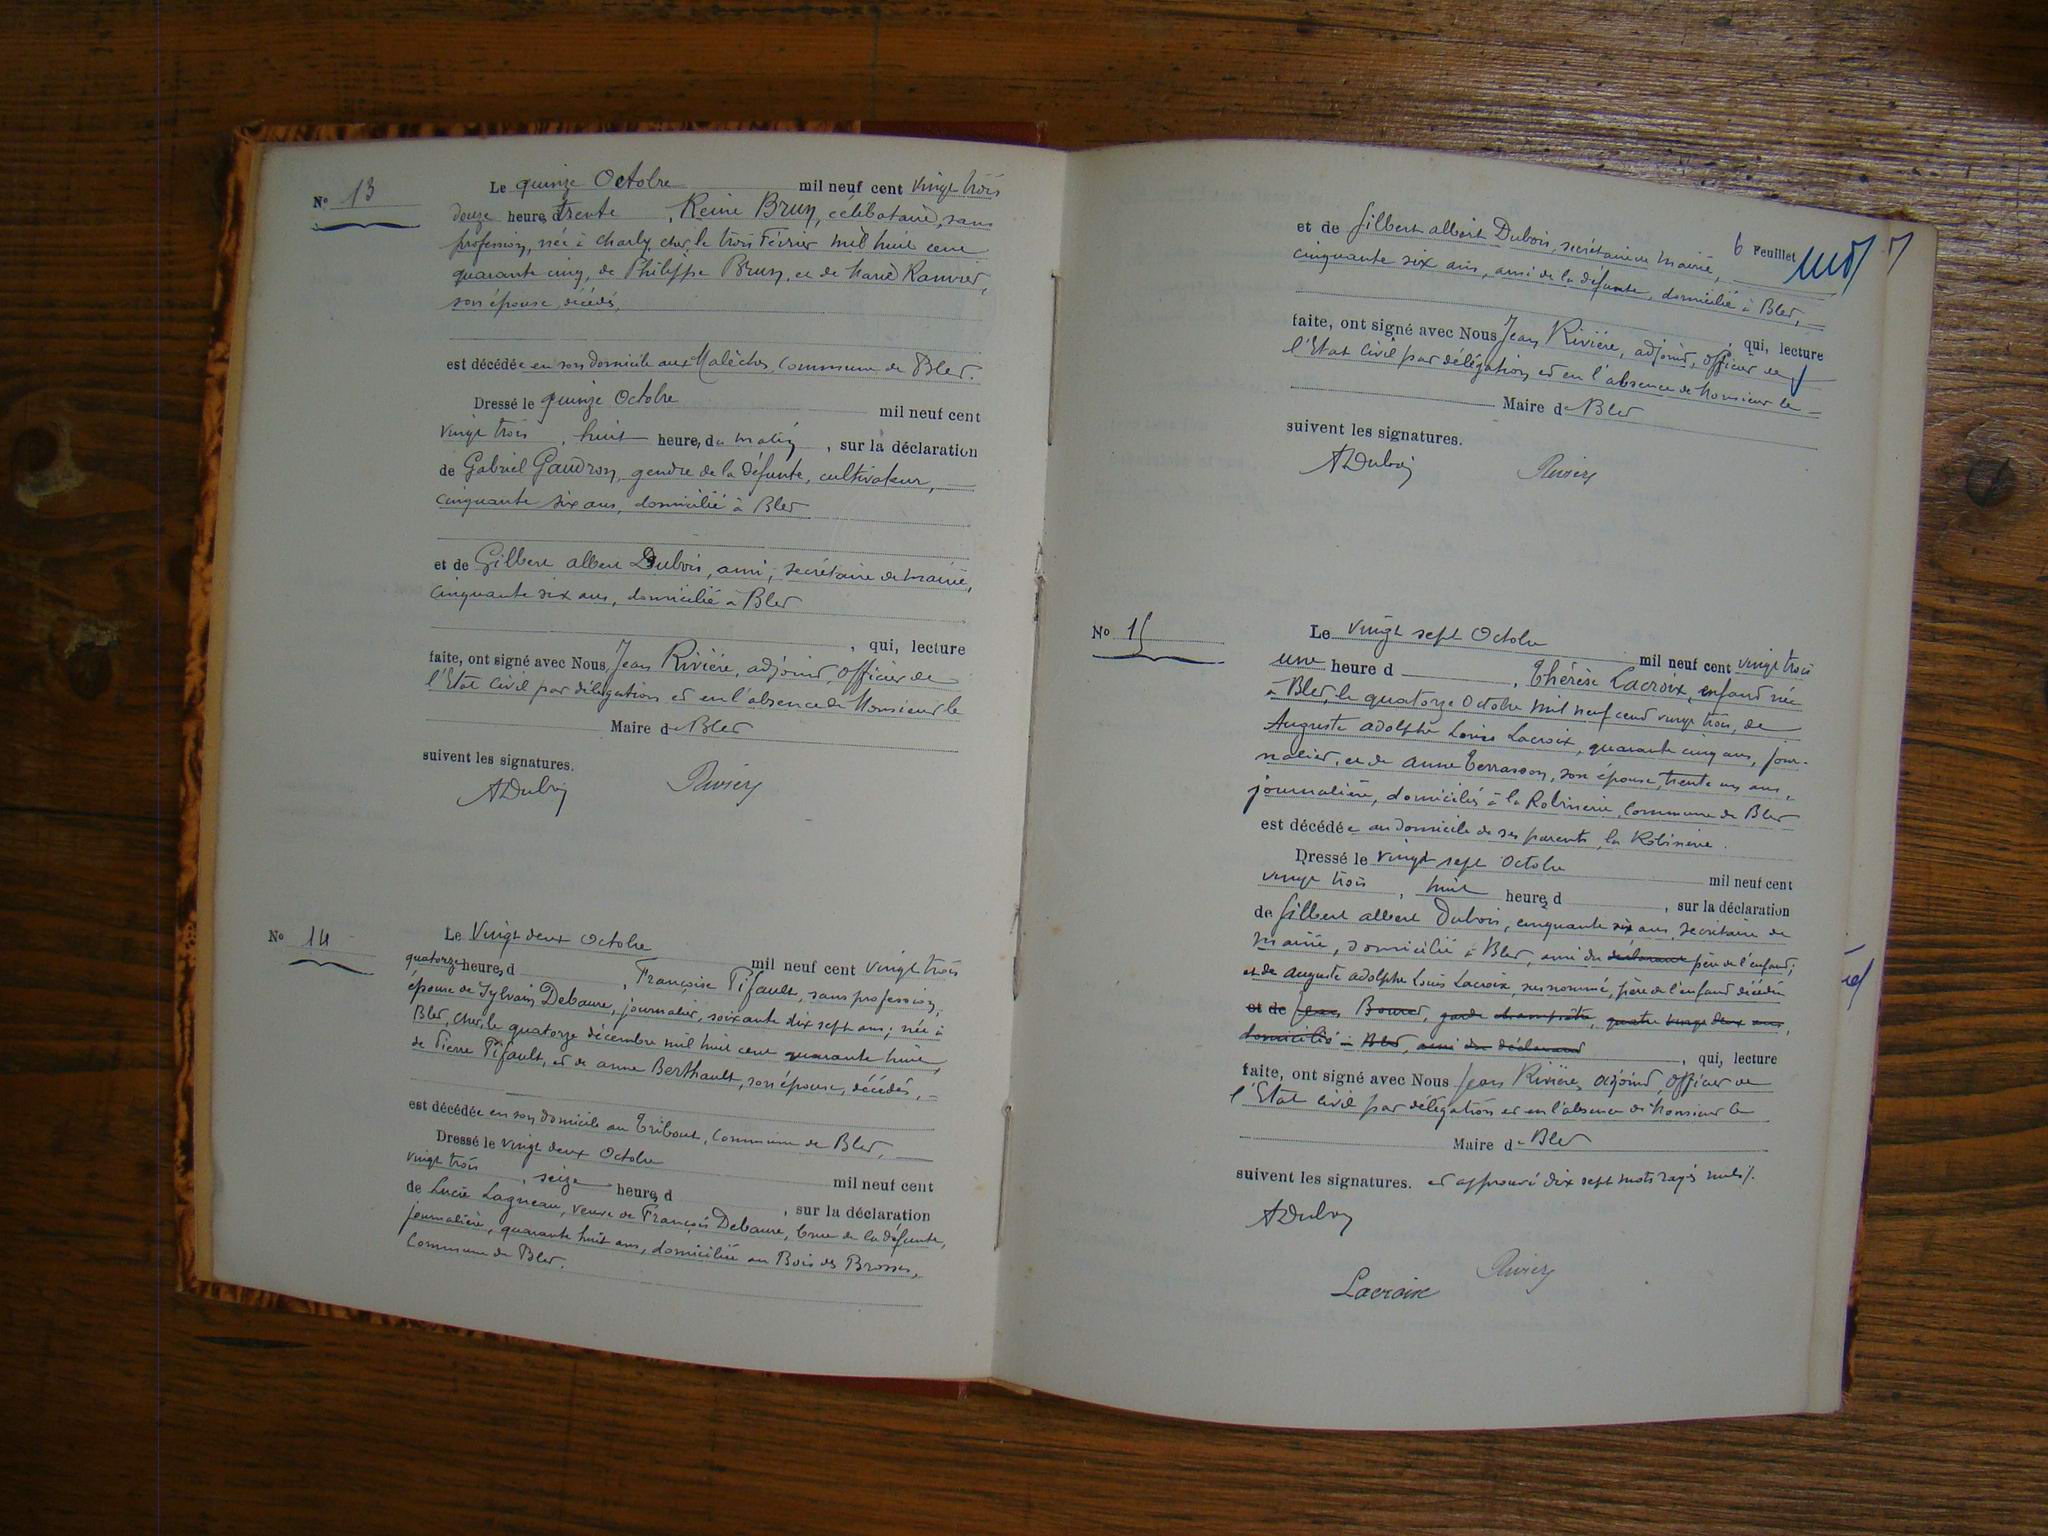 N° 13
Le quinze Octobre mil neuf cent vingt trois
douze heures trente, Reine Brun, célibataire, sans
profession, née à Charly, Cher, le trois Février mil huit cent
quarante cinq, de Philippe Brun, et de Marie Ranvier,
son épouse, décédés,
est décédée en son domicile aux Malèches, Commune de Blet.
Dressé le quinze Octobre mil neuf cent
vingt trois, huit heures du matin, sur la déclaration
de Gabriel Gaudron, gendre de la défunte, cultivateur,
cinquante six ans, domicilié à Blet
et de Gilbert albert Dubois, ami, secrétaire de Mairie,
cinquante six ans, domicilié à Blet
, qui, lecture
faite, ont signé avec Nous Jean Rivière, adjoint, officier de
l'Etat Civil par délégation et en l'absence de Monsieur le
Maire de Blet
suivent les signatures.
ADubois Rivière
N° 14
Le Vingt deux Octobre mil neuf cent vingt trois
quatorze heures d, Françoise Tifault, sans profession,
épouse de Sylvain Debaure, journalier, soixante dix sept ans; née à
Blet, Cher, le quatorze décembre mil huit cent quarante huit,
de Pierre Tifault, et de anne Berthault, son épouse, décédés,
est décédée en son domicile au Tribout, Commune de Blet,
Dressé le vingt deux Octobre mil neuf cent
vingt trois, seize heures d, sur la déclaration
de Lucie Lagneau, veuve de François Debaure, brue de la défunte,
journalière, quarante huit ans, domiciliée au Bois des Brosses,
Commune de Blet.
6 Feuillet
et de Gilbert albert Dubois, secrétaire de Mairie,
cinquante six ans, ami de la défunte, domicilié à Blet,
qui, lecture
faite, ont signé avec Nous Jean Rivière, adjoint, officier de
l'Etat Civil par délégation et en l'absence de Monsieur le
Maire de Blet
suivent les signatures.
ADubois Rivière
N° 15
Le vingt sept Octobre mil neuf cent vingt trois
une heure d, Thérèse Lacroix, enfant née
à Blet, le quatorze Octobre mil neuf cent vingt trois, de
Auguste adolphe Louis Lacroix, quarante cinq ans, jour-
nalier, et de anne Terrasson, son épouse, trente un ans,
journalière, domiciliés à la Robinerie, Commune de Blet
est décédée au domicile de ses parents, la Robinerie.
Dressé le vingt sept Octobre mil neuf cent
vingt trois, huit heures d, sur la déclaration
de Gilbert albert Dubois, cinquante six ans, secrétaire de
Mairie, domicilié à Blet, ami du déclarant père de l'enfant;
et de Auguste adolphe Louis Lacroix, susnommé, père de l'enfant décédée
et de Jean Bouret, garde champêtre, quatre vingt deux ans,
domicilié à Blet, ami du déclarant, qui, lecture
faite, ont signé avec Nous Jean Rivière, adjoint, Officier de
l'Etat Civil par délégation et en l'absence de Monsieur le
Maire de Blet
suivent les signatures. et approuvé dix sept mots rayés nuls.
ADubois
Rivière
Lacroix